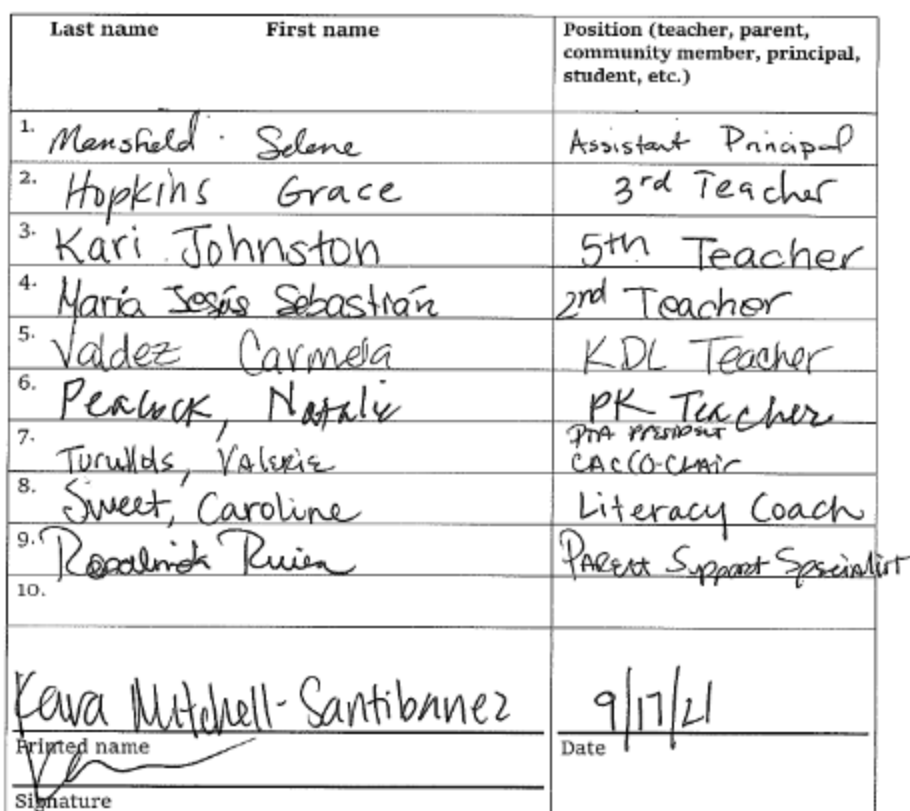 Last name First name Position (teacher, parent,
community member, principal,
student, etc.)
1. Mansfield Selene Assistant Principal
2. Hopkins Grace 3rd Teacher
3. Kari Johnston 5th Teacher
4. María Jesús Sebastián 2nd Teacher
5. Valdez Carmela KDL Teacher
6. Peacock, Natalie PK Teacher
PTA PRESIDENT
7. Valerie CAC CO-CHAIR
8. Sweet, Caroline Literacy Coach
9. Parent Support Specialist
10.
Mitchell-Santibanez 9/17/21
Printed name Date
Signature